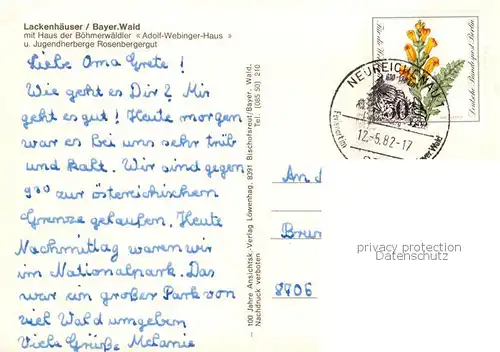 Lackenhäuser / Bayer.Wald
mit Haus der Böhmerwäldler « Adolf-Webinger-Haus »
u. Jugendherberge Rosenbergergut
Liebe Oma Grete !
Wie geht es Dir? Mir
geht es gut! Heute morgen
war es bei uns sehr trüb
und kalt. Wir sind gegen
9³⁰ zur österreichischem
Grenze gelaufen. Heute
Nachmittag waren wir
im Nationalpark. Das
war ein großer Park von
viel Wald umgeben
Viele Grüße Melanie
– 100 Jahre Ansichtsk.-Verlag Löwenhag, 8391 Bischofsreut/Bayer. Wald,
Tel. (085 50) 210
Nachdruck verboten
Deutsche Bundespost Berlin
50
NEUREICHENAU
12.-5.82-17
Bayer Wald
An
Brun
8706
privacy protection
DELCAMPE